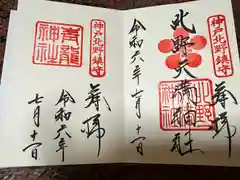 神戸北野鎮守
北野天満神社
令和六年七月十一日
奉拝
神戸北野鎮守
青龍神社
奉拝
令和六年
七月十一日